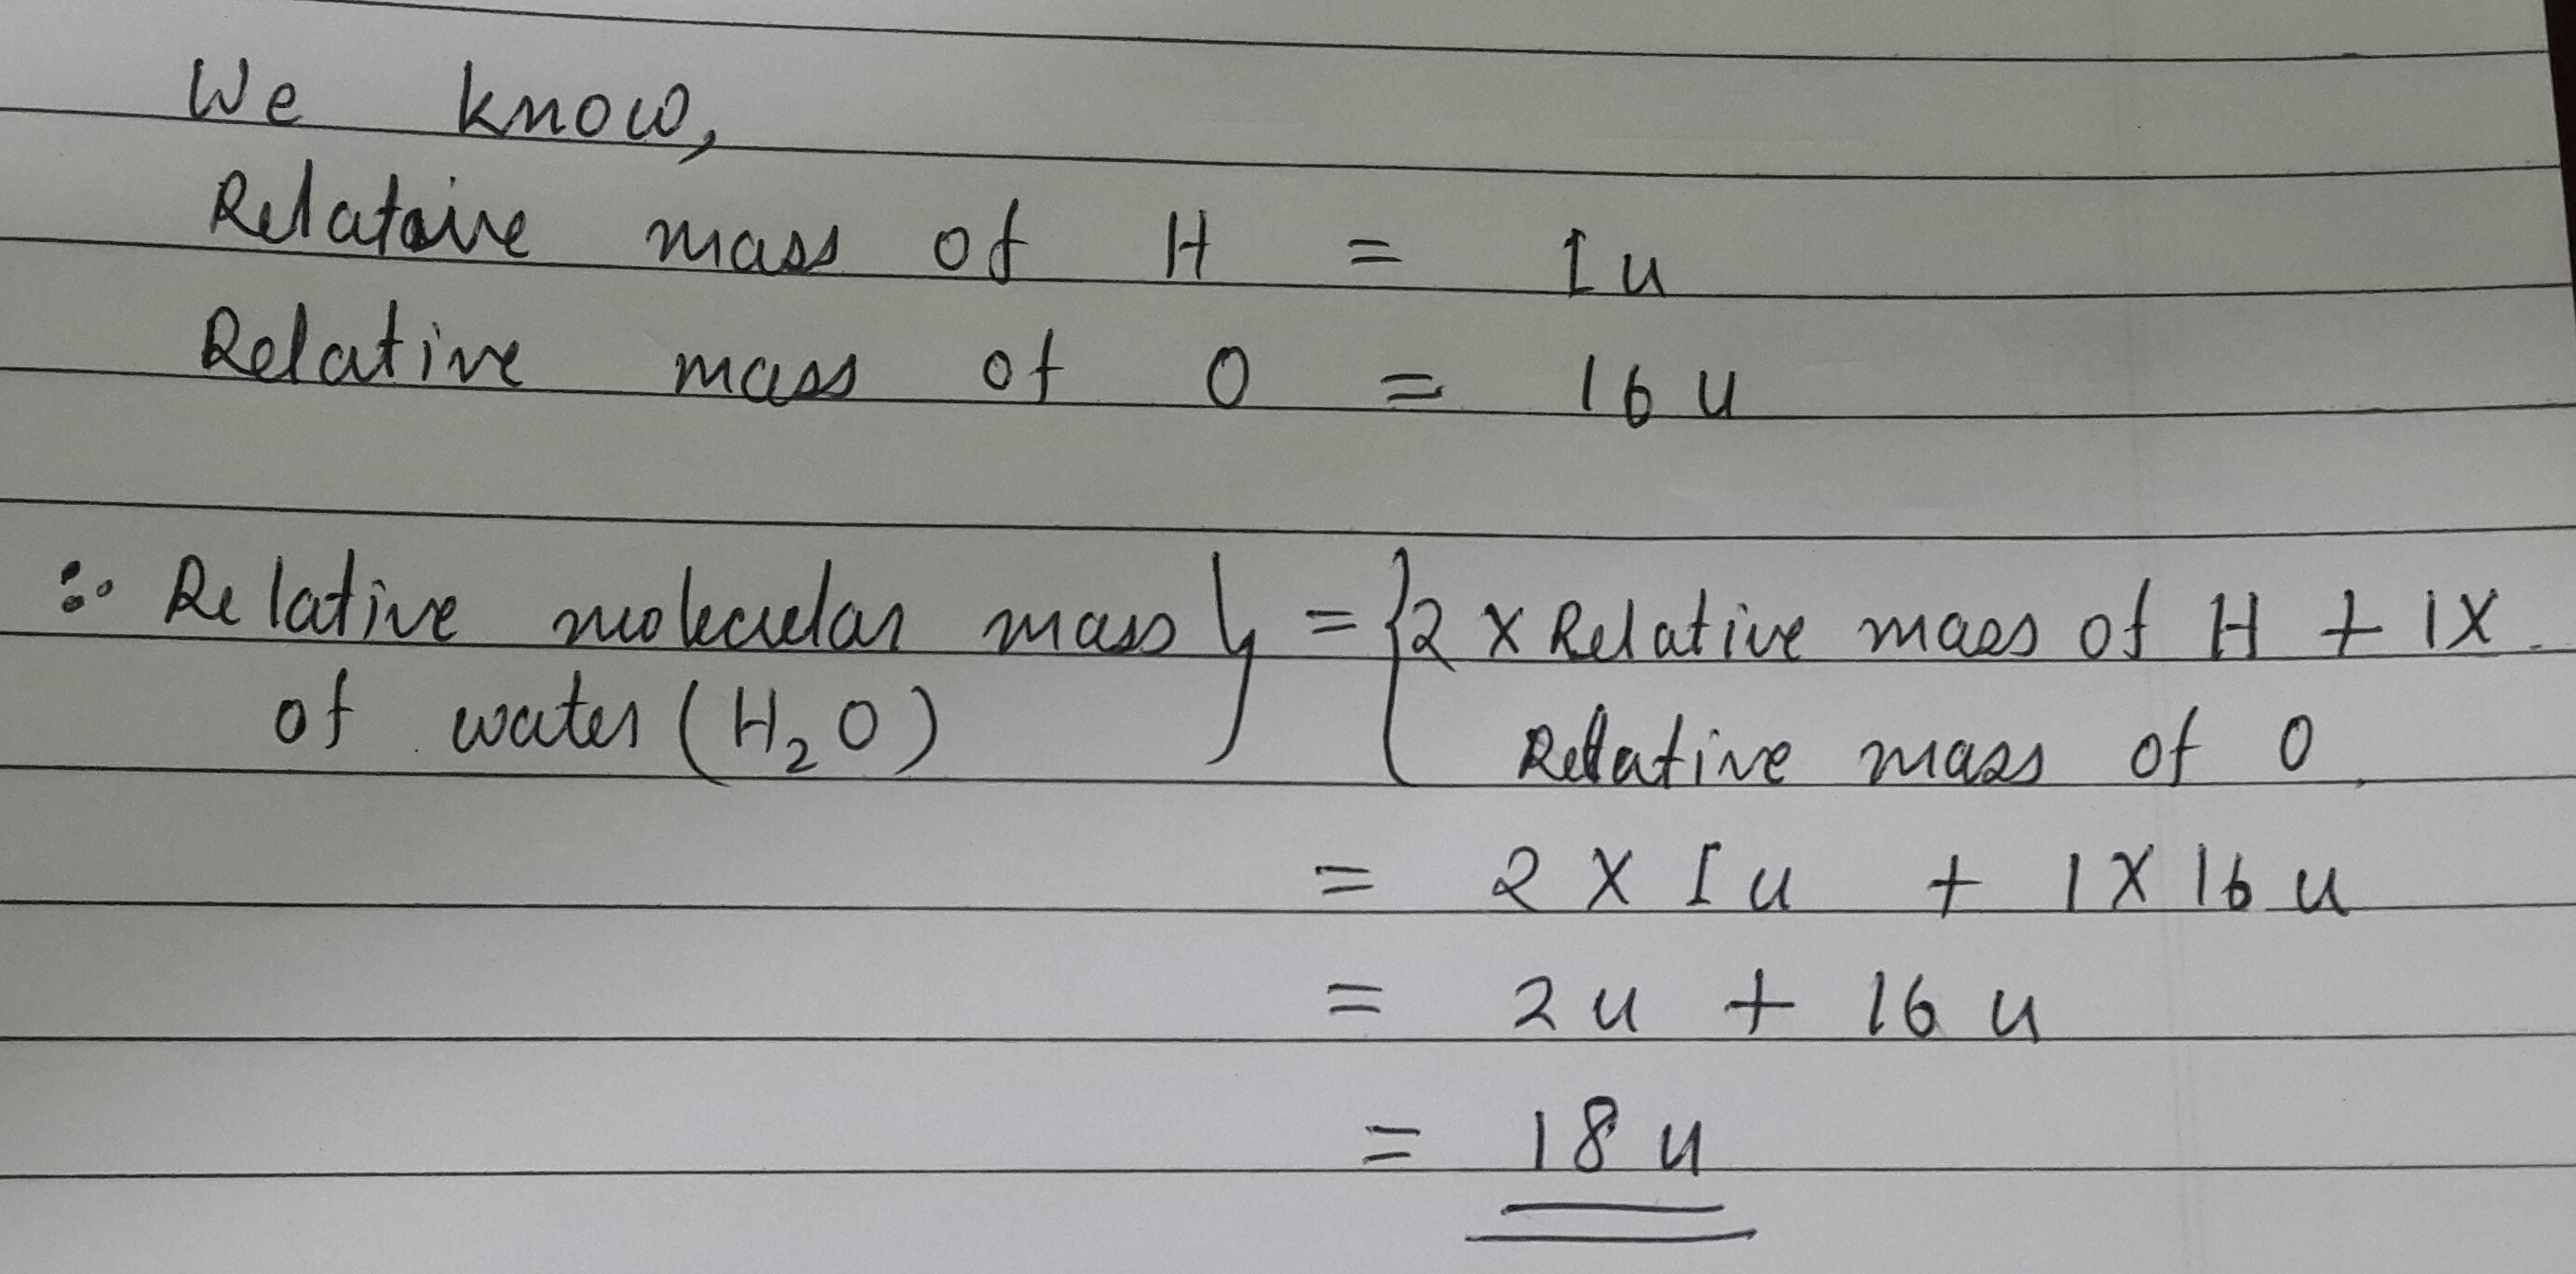 We know,
Relative mass of H = 1u
Relative mass of O = 16 u
∴ Relative molecular mass } = { 2 x Relative mass of H + 1x
of water (H₂O) Relative mass of O
= 2 x 1u + 1 x 16 u
= 2u + 16 u
= 18 u